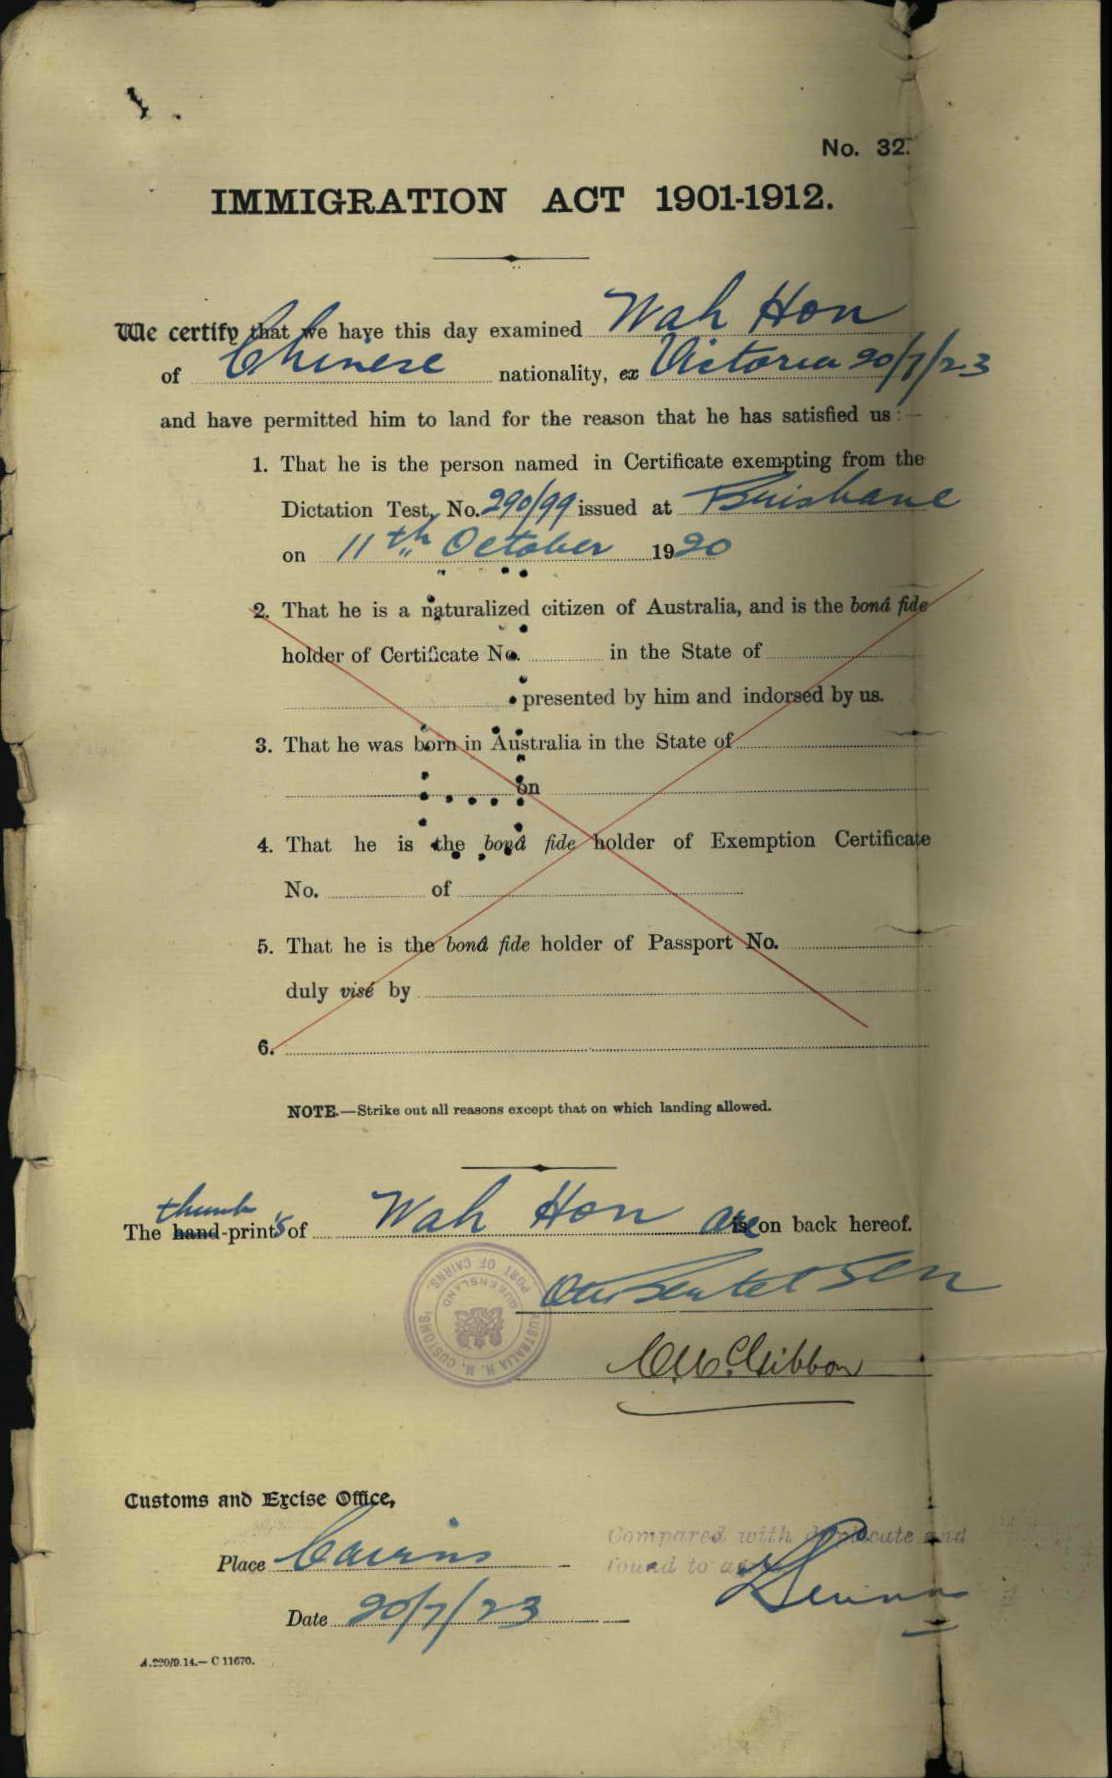 No. 32.
IMMIGRATION ACT 1901-1912.
We certify that we have this day examined Wah Hon
of Chinese nationality, ex Victoria 20/7/23
and have permitted him to land for the reason that he has satisfied us :—
1. That he is the person named in Certificate exempting from the
Dictation Test, No. 290/99 issued at Brisbane
on 11th October 1920
2. That he is a naturalized citizen of Australia, and is the bonâ fide
holder of Certificate No. in the State of
presented by him and indorsed by us.
3. That he was born in Australia in the State of
on
4. That he is the bonâ fide holder of Exemption Certificate
No. of
5. That he is the bonâ fide holder of Passport No.
duly visé by
6.
NOTE.—Strike out all reasons except that on which landing allowed.
thumb
The hand-print's of Wah Hon are on back hereof.
AUSTRALIA H. M. CUSTOMS.
PORT OF CAIRNS.
QUEENSLAND
C. McGibbon
Customs and Excise Office,
Compared with duplicate and
Place Cairns
found to
Date 20/7/23
A.220/9.14.— C 11670.